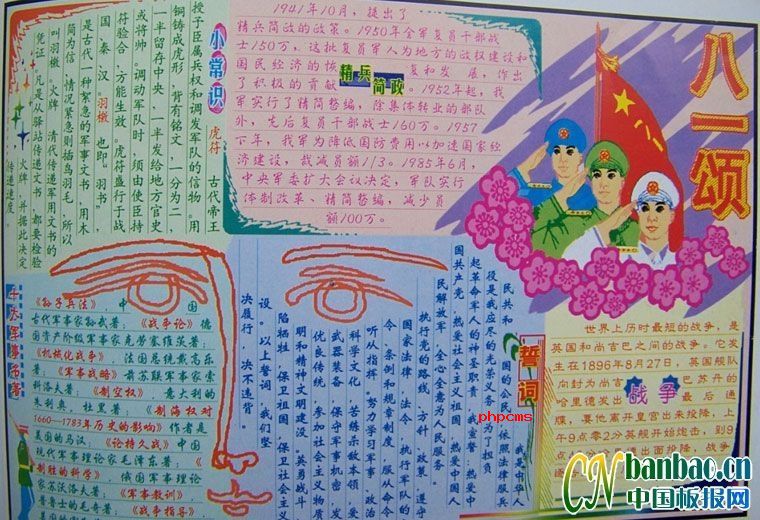 八一颂
1941年10月，提出了
精兵简政的政策。1950年全军复员干部战
士150万，这批复员军人为地方的政权建设和
国民经济的恢复和发展，作出
了积极的贡献。1952年起，我
精兵简政
军实行了精简整编，除集体转业的部队
外，先后复员干部战士160万。1957
下年，我军为降低国防费用以加速国家经
济建设，裁减员额1/3。1985年6月，
中央军委扩大会议决定，军队实行
体制改革、精简整编，减少员
额100万。
小常识
虎符 古代帝王
授于臣属兵权和调发军队的信物。用
铜铸成虎形，背有铭文，一分为二，
一半留存中央，一半发给地方官史
或将帅。调动军队时，须由使臣持
符验合，方能生效。虎符盛行于战
国秦汉。羽檄 也即羽书
是古代一种紧急的军事文书，用木
简为信，情况紧急则插鸟羽毛，所以
叫羽檄。火牌 清代传递军用文书的
凭证，凡是从驿站传递文书，都要检验
火牌，并据此决定
传递速度。
世界上历时最短的战争，是
英国和尚吉巴之间的战争。它发
生在1896年8月27日，英国舰队
向封为尚吉巴苏丹的
哈里德发出最后通
战争
牒，要他离开皇宫出来投降，上
午9点零2分英舰开始炮击，到9
誓词
我是中华人
民共和国的公民，依照法律服兵
役是我应尽的光荣义务。为了担负
起革命军人的神圣职责，我宣誓：热爱中
国共产党，热爱社会主义祖国，热爱中国人
民解放军，全心全意为人民服务；
执行党的路线，方针，政策，遵守
国家法律，法令，执行军队的
命令，条例和规章制度，服从命令
听从指挥，努力学习军事，政治
科学文化，苦练杀敌本领，爱护
武器装备，保守军事机密，发扬
优良传统，参加社会主义物质
文明和精神文明建设。英勇战斗
保卫祖国，保卫社会主义
设。以上誓词，我们坚
决履行，决不违背
《孙子兵法》，中国
古代军事家孙武著；《战争论》德
国资产阶级军事家克劳塞维茨著；
《机械化战争》 法国总统戴高乐
著；《军事战略》前苏联军事家索
科洛夫著；《制空权》 意大利的
朱利奥，杜黑著；《制海权对
1660—1783年历史的影响》作者是
美国的马汉；《论持久战》中国
现代军事理论家毛泽东著；《
制胜的科学》，俄国军事理论
家苏沃洛夫著；《军事教训》
普鲁士的毛奇著；《战争指导》
phpcms
CNbanbao.cn
中国板报网